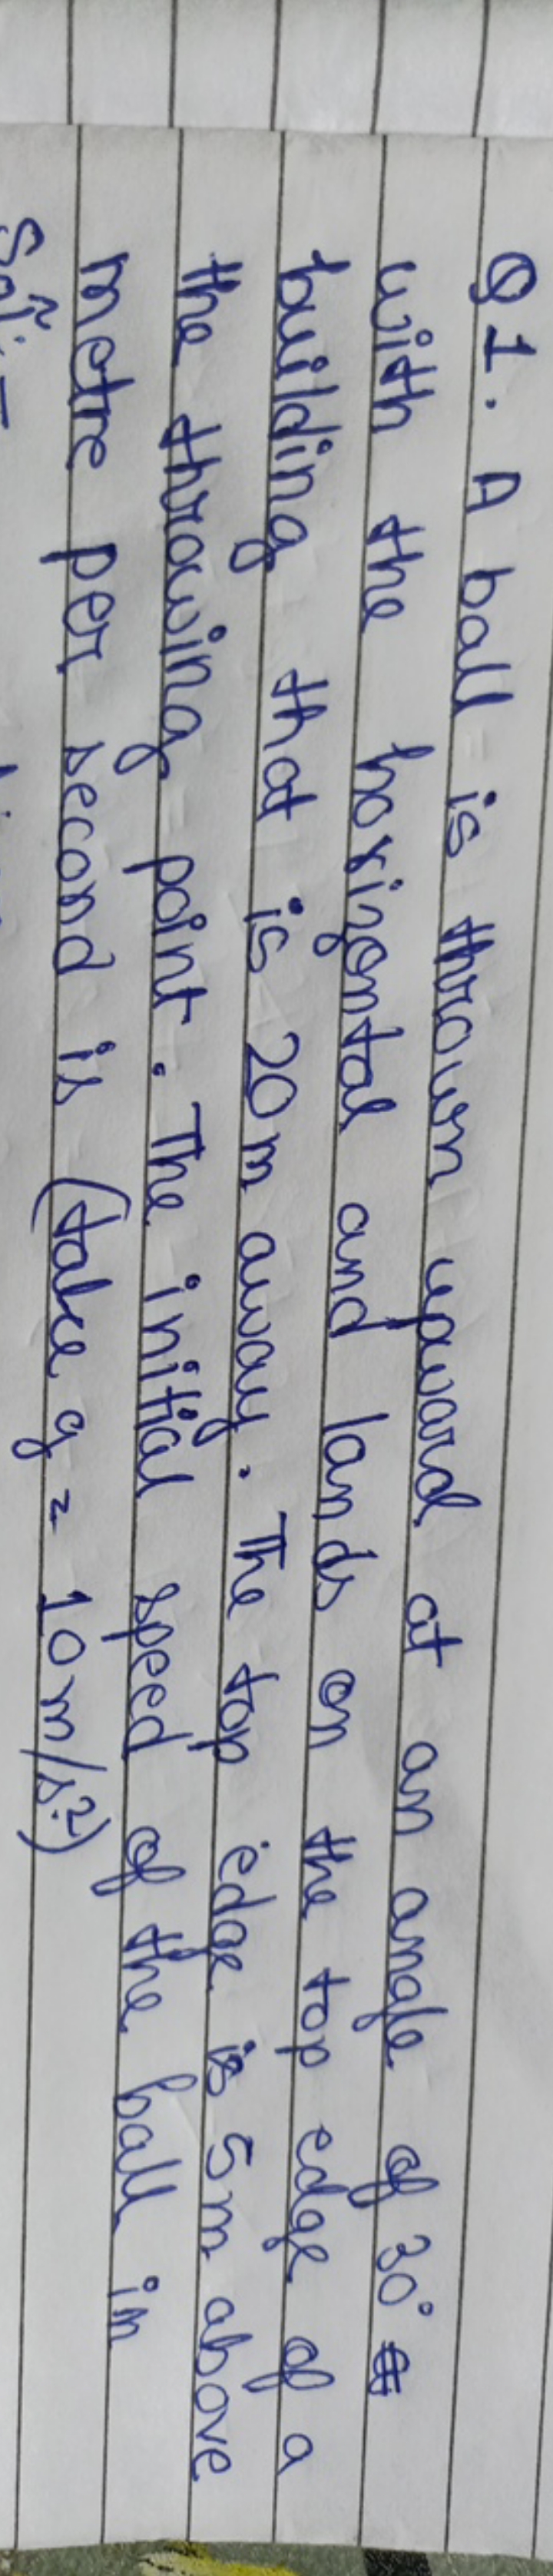 Q1. A ball is thrown upward at an angle of 30°
with the horizontal and lands on the top edge of a
building that is 20m away. The top edge is 5m above
the throwing point. The initial speed of the ball in
metre per second is (take g = 10m/s²)
Solⁿ:-